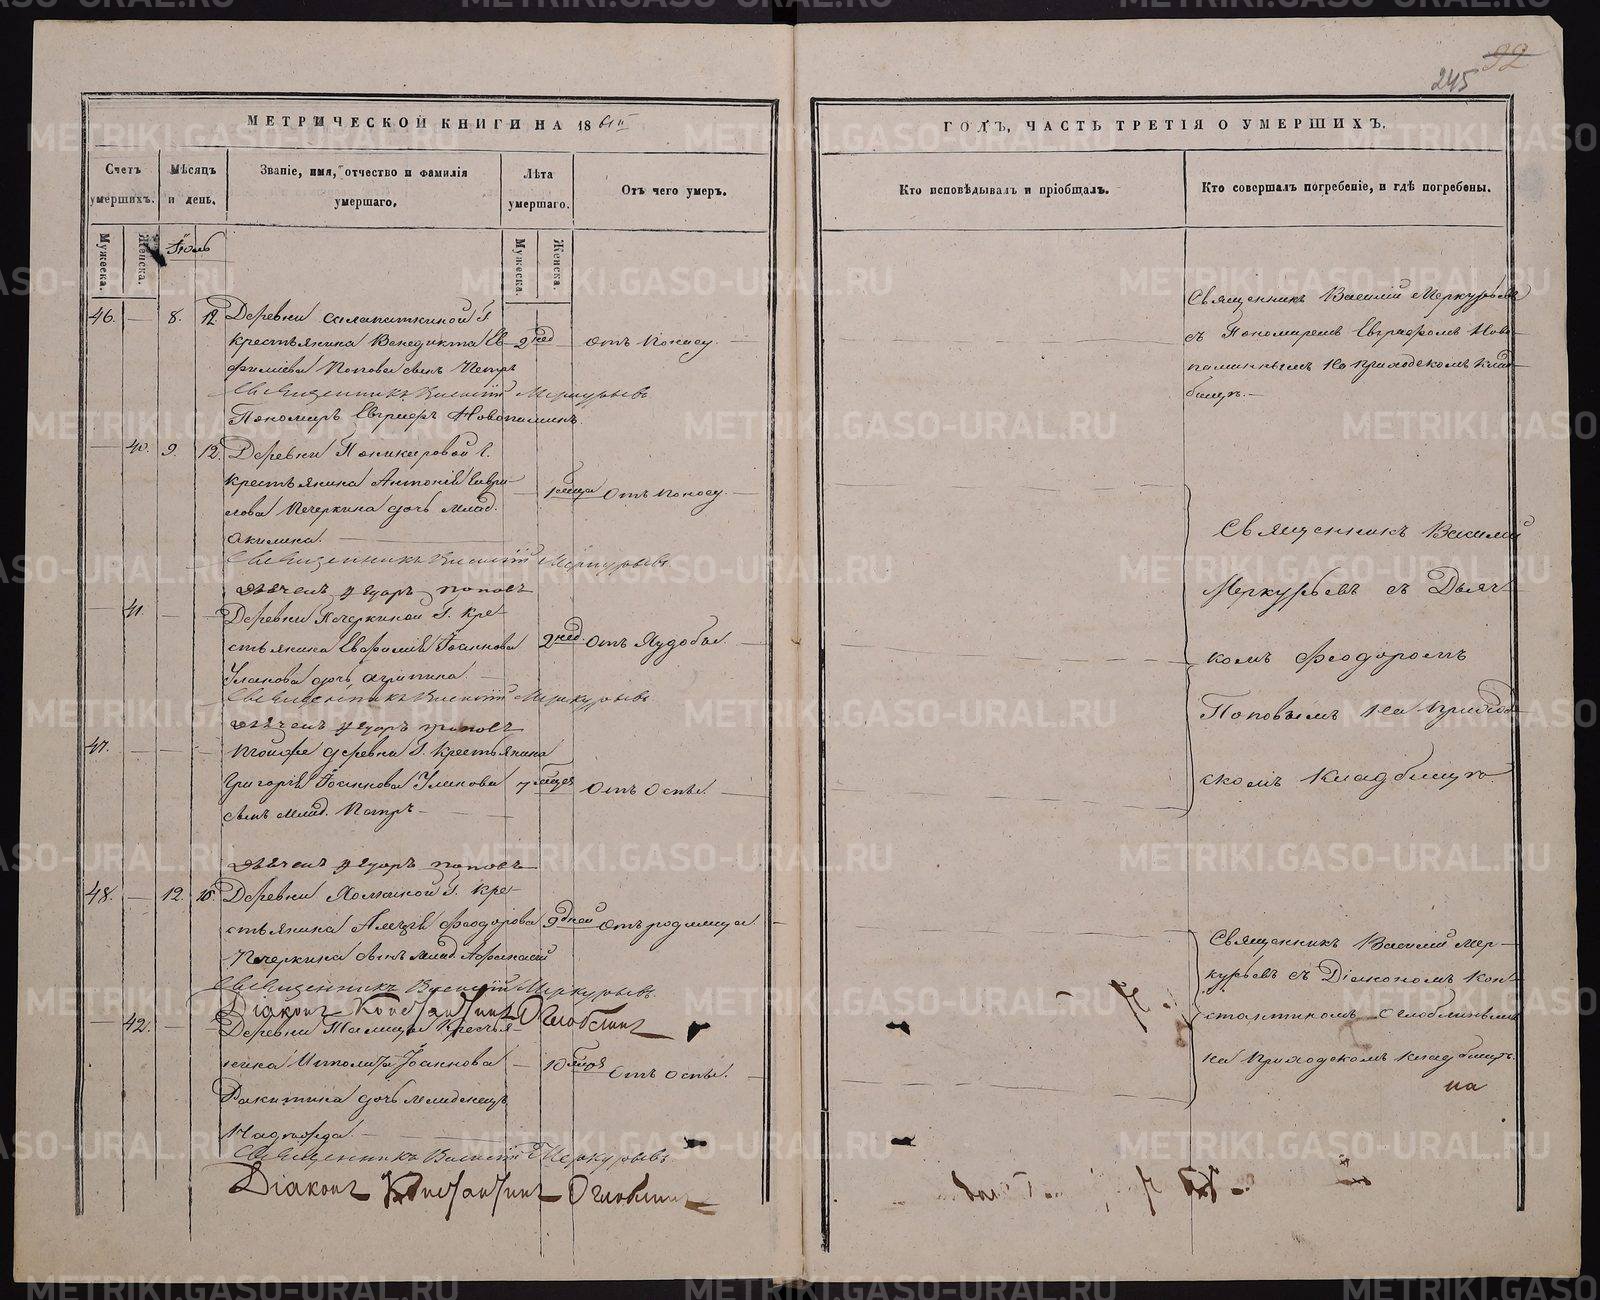 92
245
МЕТРИЧЕСКОЙ КНИГИ НА 18
ГОДЪ, ЧАСТЬ ТРЕТІЯ О УМЕРШИХЪ.
Счетъ умершихъ.
Мѣсяцъ и день.
Званіе, имя, отчество и фамилія умершаго.
Лѣта умершаго.
Отъ чего умеръ.
Кто исповѣдывалъ и пріобщалъ.
Кто совершалъ погребеніе, и гдѣ погребены.
Мужеска.
Женска.
Іюль
Мужеска.
Женска.
46. — 8. 12. Деревни
крестьянина Венедикта Ев-
Попова сынъ Петръ
2 нед
отъ поносу.
Священникъ Василій Меркурьевъ
Пономарь Евграфъ Новопаминъ.
Священникъ Василій Меркурьевъ
съ Пономаремъ Евграфомъ Ново-
на приходскомъ клад-
бищѣ.—
— 40. 9. 12. Деревни
крестьянина Антонія Гаври-
лова Печеркина дочь млад.
Акилина.
отъ поносу.
Священникъ Василій Меркурьевъ
дьячекъ Ѳедоръ поповъ
— 41. — — Деревни Печеркиной г. кре-
стьянина Іоаннова
Уланова дочь
2 нед.
отъ Худобы.
Священникъ Василій Меркурьевъ
дьячекъ Ѳедоръ поповъ
47. — — — Тойже деревни г. крестьянина
Григорія Іоаннова Уланова
сынъ млад. Петръ —
7
отъ оспы
дьячекъ Ѳедоръ поповъ
Священникъ Василій
Меркурьевъ съ Дьяч-
комъ Феодоромъ
Поповымъ на приход-
скомъ кладбищѣ
48. — 12. Деревни г. кре-
стьянина Феодорова
Печеркина сынъ млад. Афанасій
9 дней
отъ родимца.
Священникъ Василій Меркурьевъ.
Діаконъ Константинъ Оглоблинъ
— 42. — Деревни Талицы крестья-
нина Иполита Іоаннова
Ракитина дочь младенецъ
Надежда.
10
отъ оспы.
Священникъ Василій Меркурьевъ
Діаконъ Константинъ Оглоблинъ
Священникъ Василій Мер-
курьевъ съ Діакономъ Кон-
стантиномъ Оглоблинымъ
на приходскомъ кладбищѣ.
METRIKI.GASO-URAL.RU